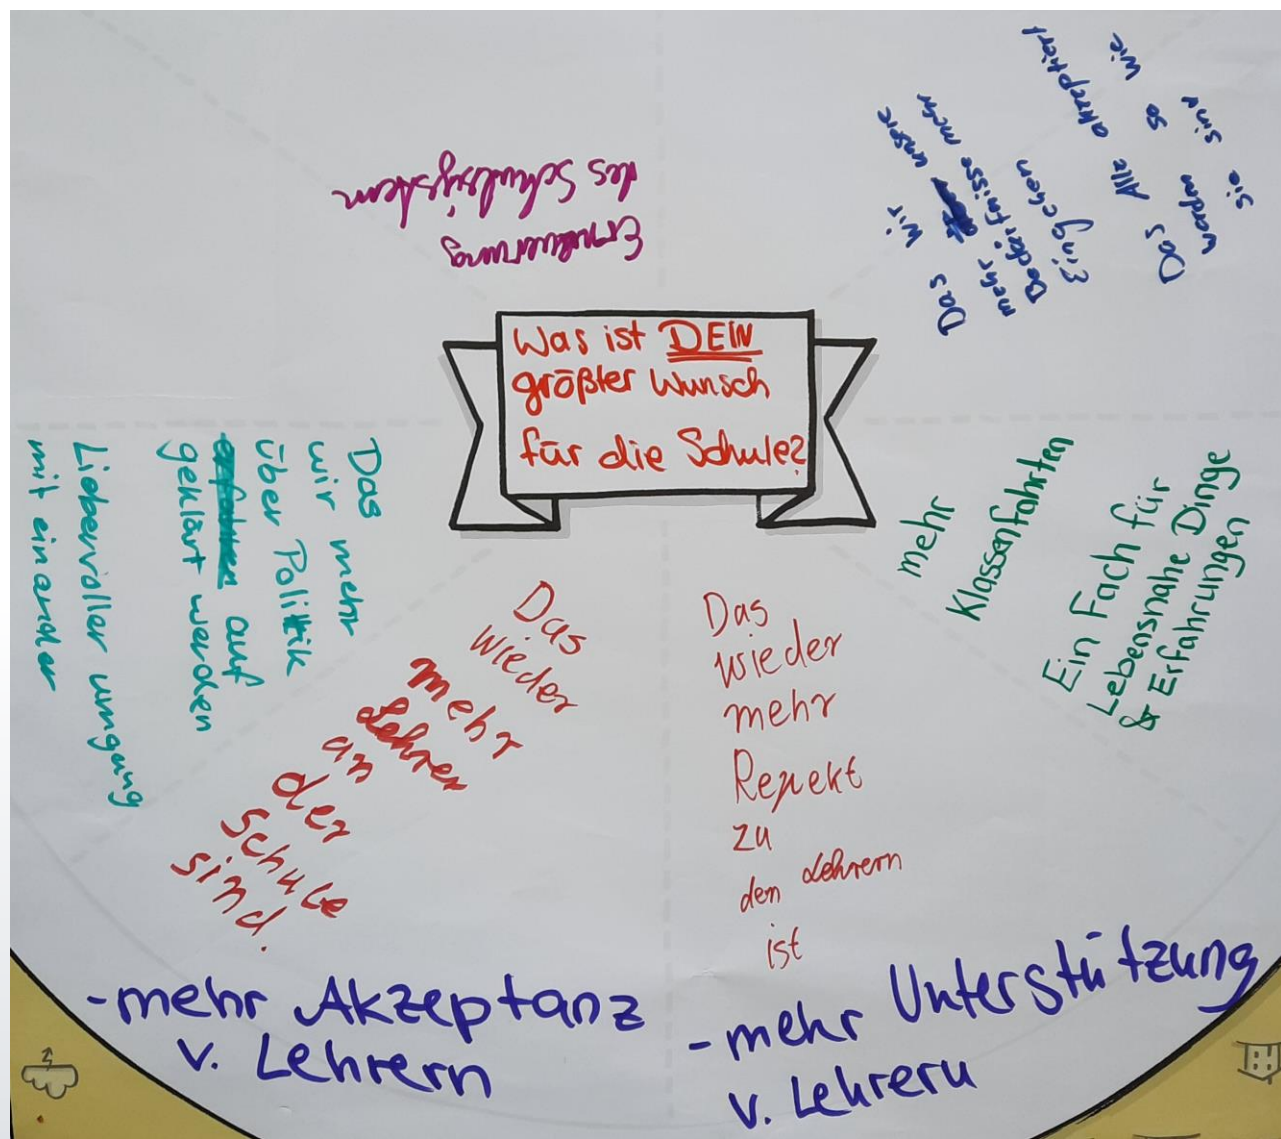 Was ist DEIN
größter Wunsch
für die Schule?
Erneuerung
des Schulsystem
Das wir unsere
mehr
Bedürfnisse mehr
Eingehen
Das Alle akzeptiert
werden so wie
sie sind
mehr
Klassenfahrten
Ein Fach für
Lebensnahe Dinge
& Erfahrungen
Das
wieder
mehr
Repekt
zu
den Lehrern
ist
Das
wieder
mehr
Lehrer
an
der
Schule
sind.
Das
wir mehr
über Politik
auf
geklärt werden
Liebevoller umgang
mit einander
-mehr Akzeptanz
v. Lehrern
-mehr Unterstützung
v. Lehrern